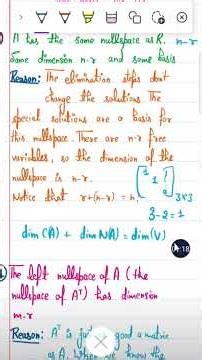 A has the same nullspace as R. n-r
Same dimension n-r and same basis
Reason: The elimination steps dont
change the solutions The
special solutions are a basis for
this nullspace. There are n-r free
variables, so the dimension of the
nullspace is n-r.
Notice that r+(n-r) = n,
[1 1 0] 3x3
3-2=1
dim C(A) + dim N(A) = dim(V)
:18
The left nullspace of A (the
nullspace of Aᵀ) has dimension
m-r
Reason: Aᵀ is just good a matrix
as A. When know the